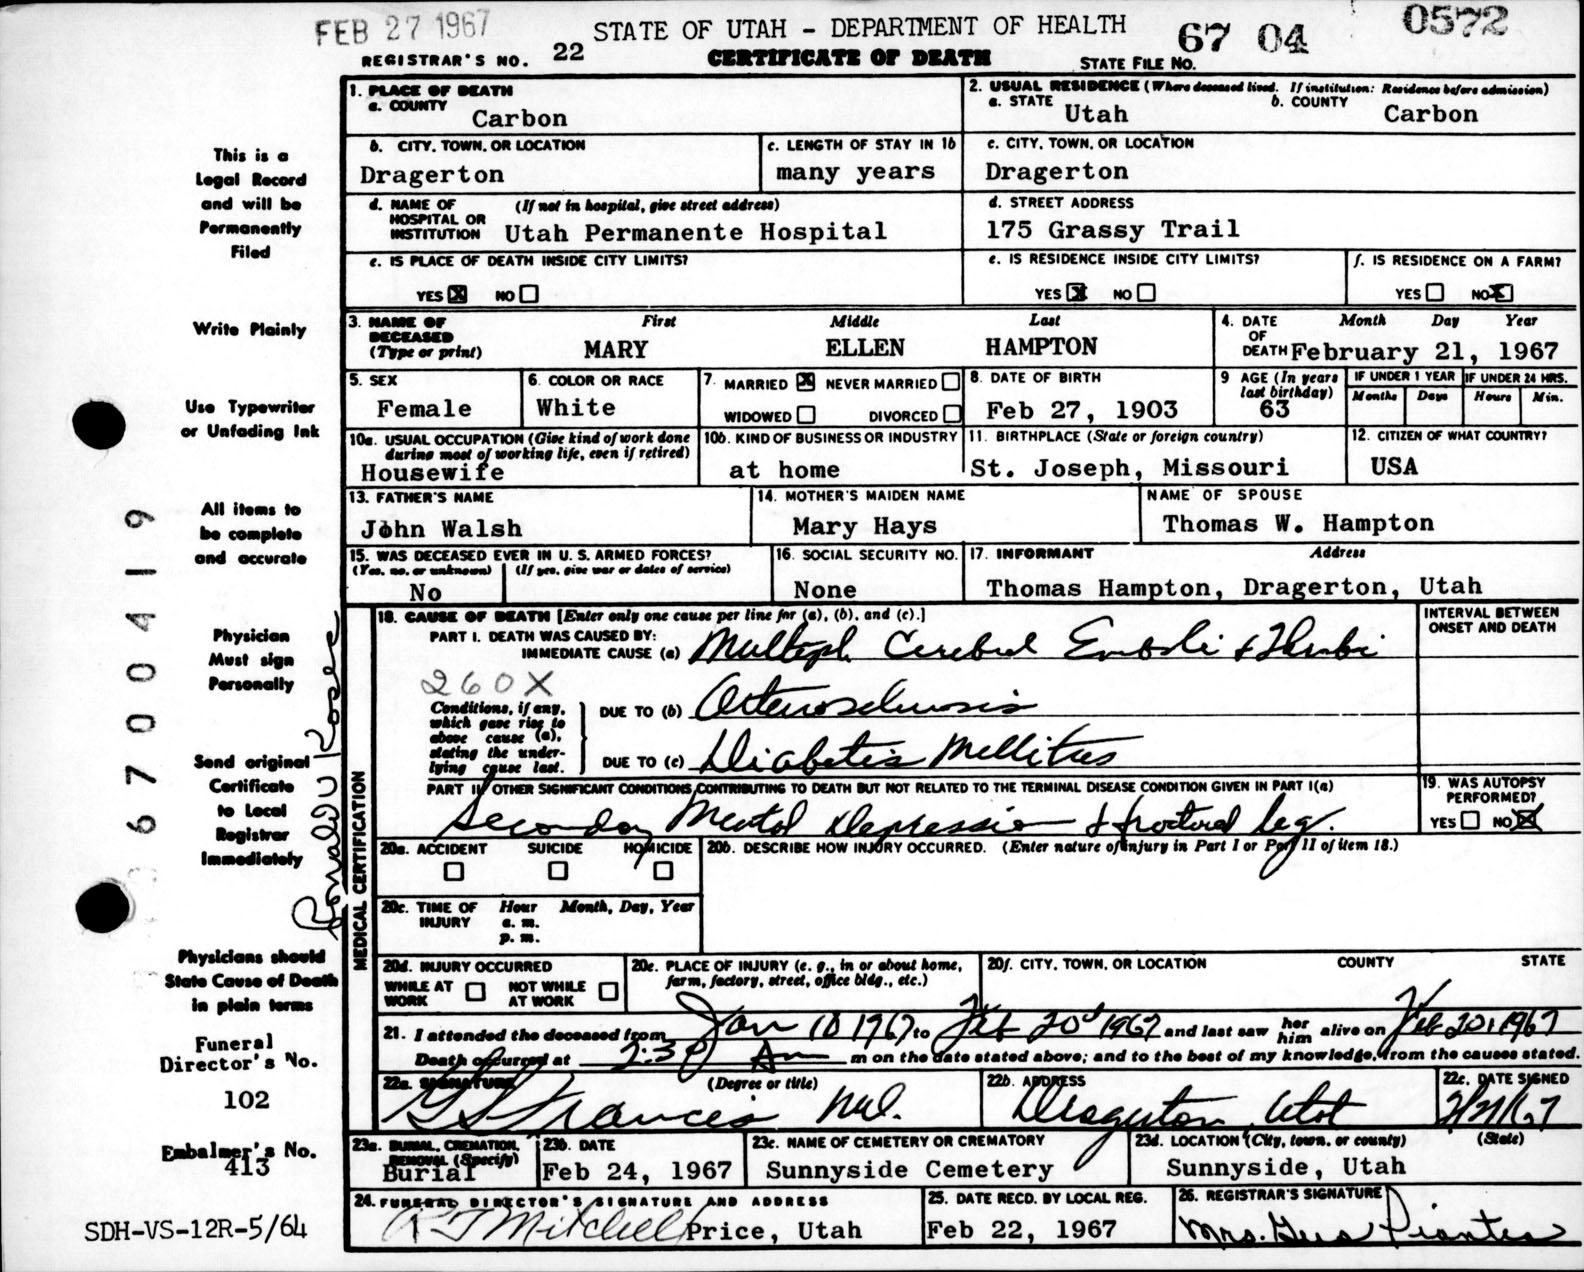 FEB 27 1967
STATE OF UTAH - DEPARTMENT OF HEALTH
67 04 0572
REGISTRAR'S NO. 22
CERTIFICATE OF DEATH
STATE FILE NO.
This is a
Legal Record
and will be
Permanently
Filed
Write Plainly
Use Typewriter
or Unfading Ink
All items to
be complete
and accurate
Physician
Must sign
Personally
Send original
Certificate
to Local
Registrar
Immediately
Physicians should
State Cause of Death
in plain terms
Funeral
Director's No.
102
Embalmer's No.
413
SDH-VS-12R-5/64
6700419
1. PLACE OF DEATH
a. COUNTY
Carbon
2. USUAL RESIDENCE (Where deceased lived. If institution: Residence before admission)
a. STATE Utah
b. COUNTY Carbon
b. CITY, TOWN, OR LOCATION
Dragerton
c. LENGTH OF STAY IN 1b
many years
c. CITY, TOWN, OR LOCATION
Dragerton
d. NAME OF HOSPITAL OR INSTITUTION (If not in hospital, give street address)
Utah Permanente Hospital
d. STREET ADDRESS
175 Grassy Trail
e. IS PLACE OF DEATH INSIDE CITY LIMITS?
YES X NO
e. IS RESIDENCE INSIDE CITY LIMITS?
YES X NO
f. IS RESIDENCE ON A FARM?
YES NO X
3. NAME OF DECEASED (Type or print)
First Middle Last
MARY ELLEN HAMPTON
4. DATE OF DEATH
Month Day Year
February 21, 1967
5. SEX
Female
6. COLOR OR RACE
White
7. MARRIED X NEVER MARRIED
WIDOWED DIVORCED
8. DATE OF BIRTH
Feb 27, 1903
9 AGE (In years last birthday)
63
IF UNDER 1 YEAR
Months Days
IF UNDER 24 HRS.
Hours Min.
10a. USUAL OCCUPATION (Give kind of work done
during most of working life, even if retired)
Housewife
10b. KIND OF BUSINESS OR INDUSTRY
at home
11. BIRTHPLACE (State or foreign country)
St. Joseph, Missouri
12. CITIZEN OF WHAT COUNTRY?
USA
13. FATHER'S NAME
John Walsh
14. MOTHER'S MAIDEN NAME
Mary Hays
NAME OF SPOUSE
Thomas W. Hampton
15. WAS DECEASED EVER IN U.S. ARMED FORCES?
(Yes, no, or unknown) (If yes, give war or dates of service)
No
16. SOCIAL SECURITY NO.
None
17. INFORMANT Address
Thomas Hampton, Dragerton, Utah
MEDICAL CERTIFICATION
18. CAUSE OF DEATH [Enter only one cause per line for (a), (b), and (c).]
INTERVAL BETWEEN
ONSET AND DEATH
PART I. DEATH WAS CAUSED BY:
IMMEDIATE CAUSE (a) Multiple Cerebral Emboli & Thrombi
260X
Conditions, if any,
which gave rise to
above cause (a),
stating the under-
lying cause last.
DUE TO (b) Arteriosclerosis
DUE TO (c) Diabetis Mellitus
PART II. OTHER SIGNIFICANT CONDITIONS CONTRIBUTING TO DEATH BUT NOT RELATED TO THE TERMINAL DISEASE CONDITION GIVEN IN PART I(a)
Secondary Mental Depression & fractured leg.
19. WAS AUTOPSY
PERFORMED?
YES NO X
20a. ACCIDENT SUICIDE HOMICIDE
20b. DESCRIBE HOW INJURY OCCURRED. (Enter nature of injury in Part I or Part II of item 18.)
20c. TIME OF INJURY
Hour Month, Day, Year
a. m.
p. m.
20d. INJURY OCCURRED
WHILE AT WORK NOT WHILE AT WORK
20e. PLACE OF INJURY (e. g., in or about home,
farm, factory, street, office bldg., etc.)
20f. CITY, TOWN, OR LOCATION COUNTY STATE
21. I attended the deceased from Jan 10 1967 to Feb 20 1967 and last saw her him alive on Feb 20, 1967
Death occurred at 2:30 Am m on the date stated above; and to the best of my knowledge, from the causes stated.
22a. SIGNATURE (Degree or title)
Francis M.D.
22b. ADDRESS
Dragerton, Utah
22c. DATE SIGNED
2/21/67
23a. BURIAL, CREMATION, REMOVAL (Specify)
Burial
23b. DATE
Feb 24, 1967
23c. NAME OF CEMETERY OR CREMATORY
Sunnyside Cemetery
23d. LOCATION (City, town, or county) (State)
Sunnyside, Utah
24. FUNERAL DIRECTOR'S SIGNATURE AND ADDRESS
R J Mitchell Price, Utah
25. DATE RECD. BY LOCAL REG.
Feb 22, 1967
26. REGISTRAR'S SIGNATURE
Mrs. Gus Piantes